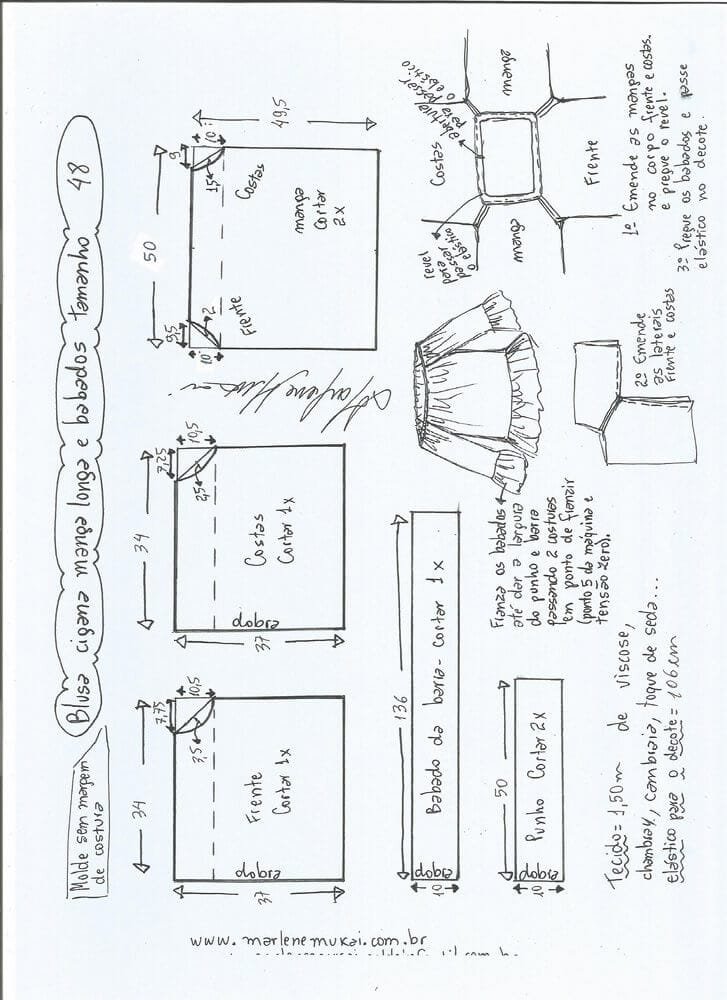 Blusa cigana manga longa e babados tamanho 48
Molde sem margem
de costura
34
7,75
10,5
3,5
Frente
Cortar 1x
dobra
37
34
7,25
10,5
2,5
Costas
Cortar 1x
dobra
37
50
9,5
10
2
Frente
9
10
15
Costas
49,5
manga
cortar
2x
136
Babado da barra - cortar 1x
dobra
10
50
Punho cortar 2x
dobra
10
Franza os babados
até dar a largura
do punho e barra
passando 2 costuras
em ponto de franzir
(ponto 5 da máquina e
tensão zero).
manga
Costas
Frente
manga
abertura
para
passar
o elástico
revel
para
passar
o elástico
1º Emende as mangas
no corpo frente e costas.
e pregue o revel.
2º Emende
as laterais
frente e costas
3º Pregue os babados e passe
elástico no decote.
Tecido = 1,50m de viscose,
chambray, cambraia, toque de seda...
elástico para o decote = 106cm
www.marlenemukai.com.br